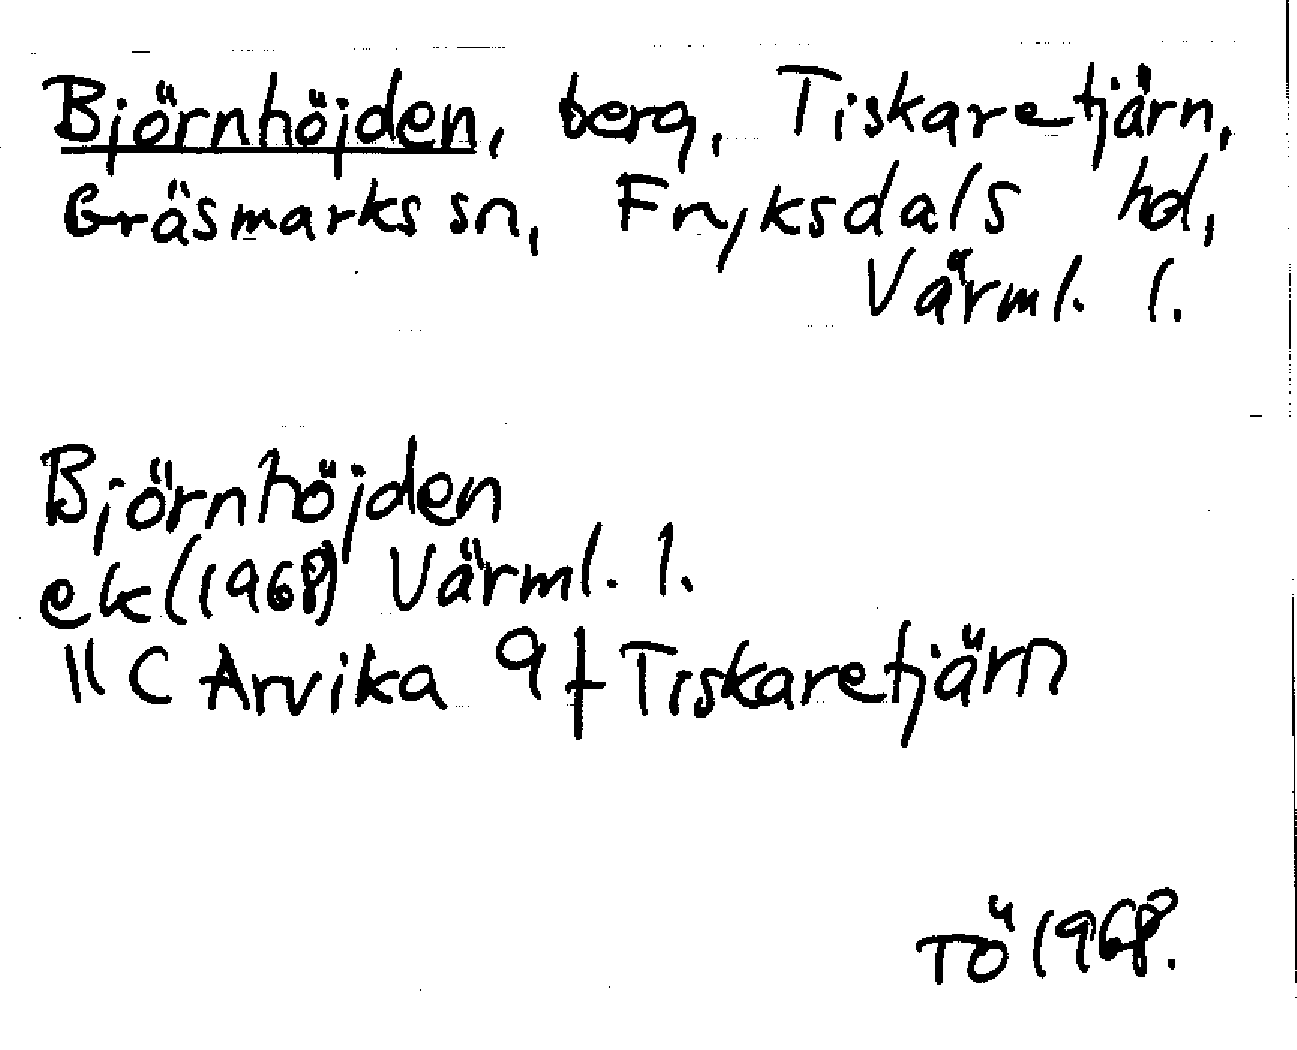 Björnhöjden, berg, Tiskaretjärn,
Gräsmarks sn, Fryksdals hd,
Värml. l.
Björnhöjden
ek (1968) Värml. l.
11 C Arvika 9 f Tiskaretjärn
TÖ 1968.